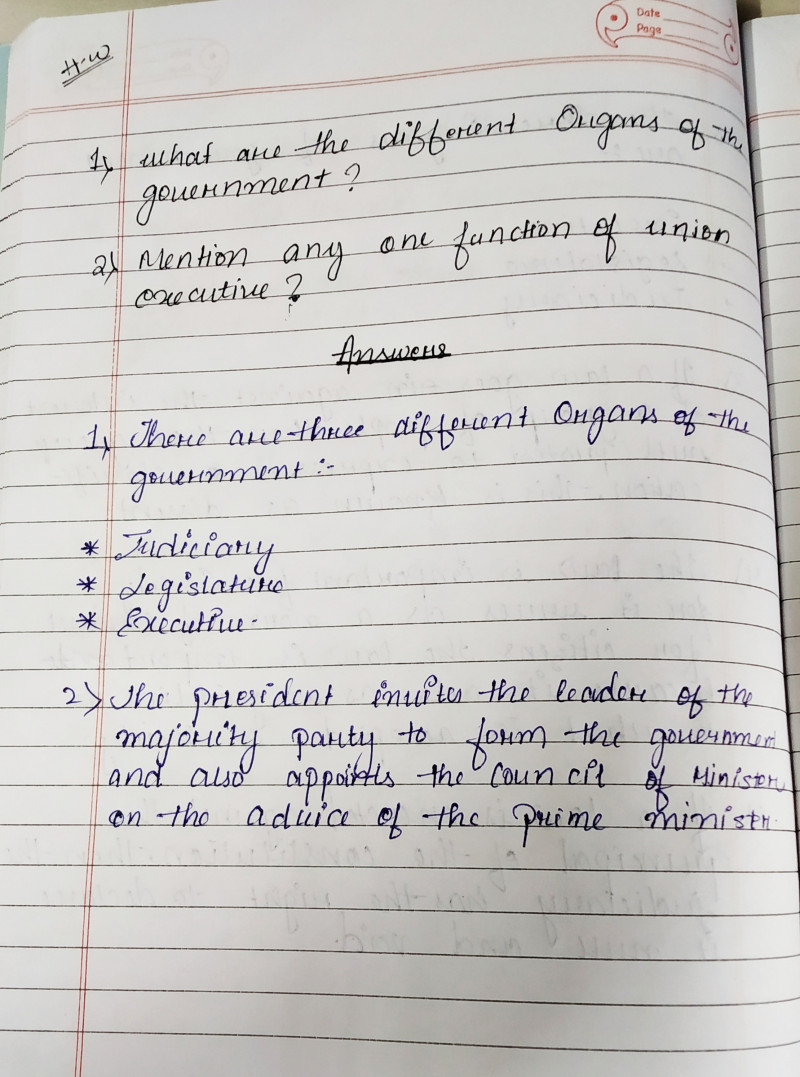 Date
Page
H.W
1) what are the different Organs of the
government?
2) Mention any one function of union
executive?
Answers
1) There are three different Organs of the
government :-
* Judiciary
* Legislature
* Executive.
2) The president invites the leader of the
majority party to form the government
and also appoints the council of Ministers
on the advice of the prime ministr.